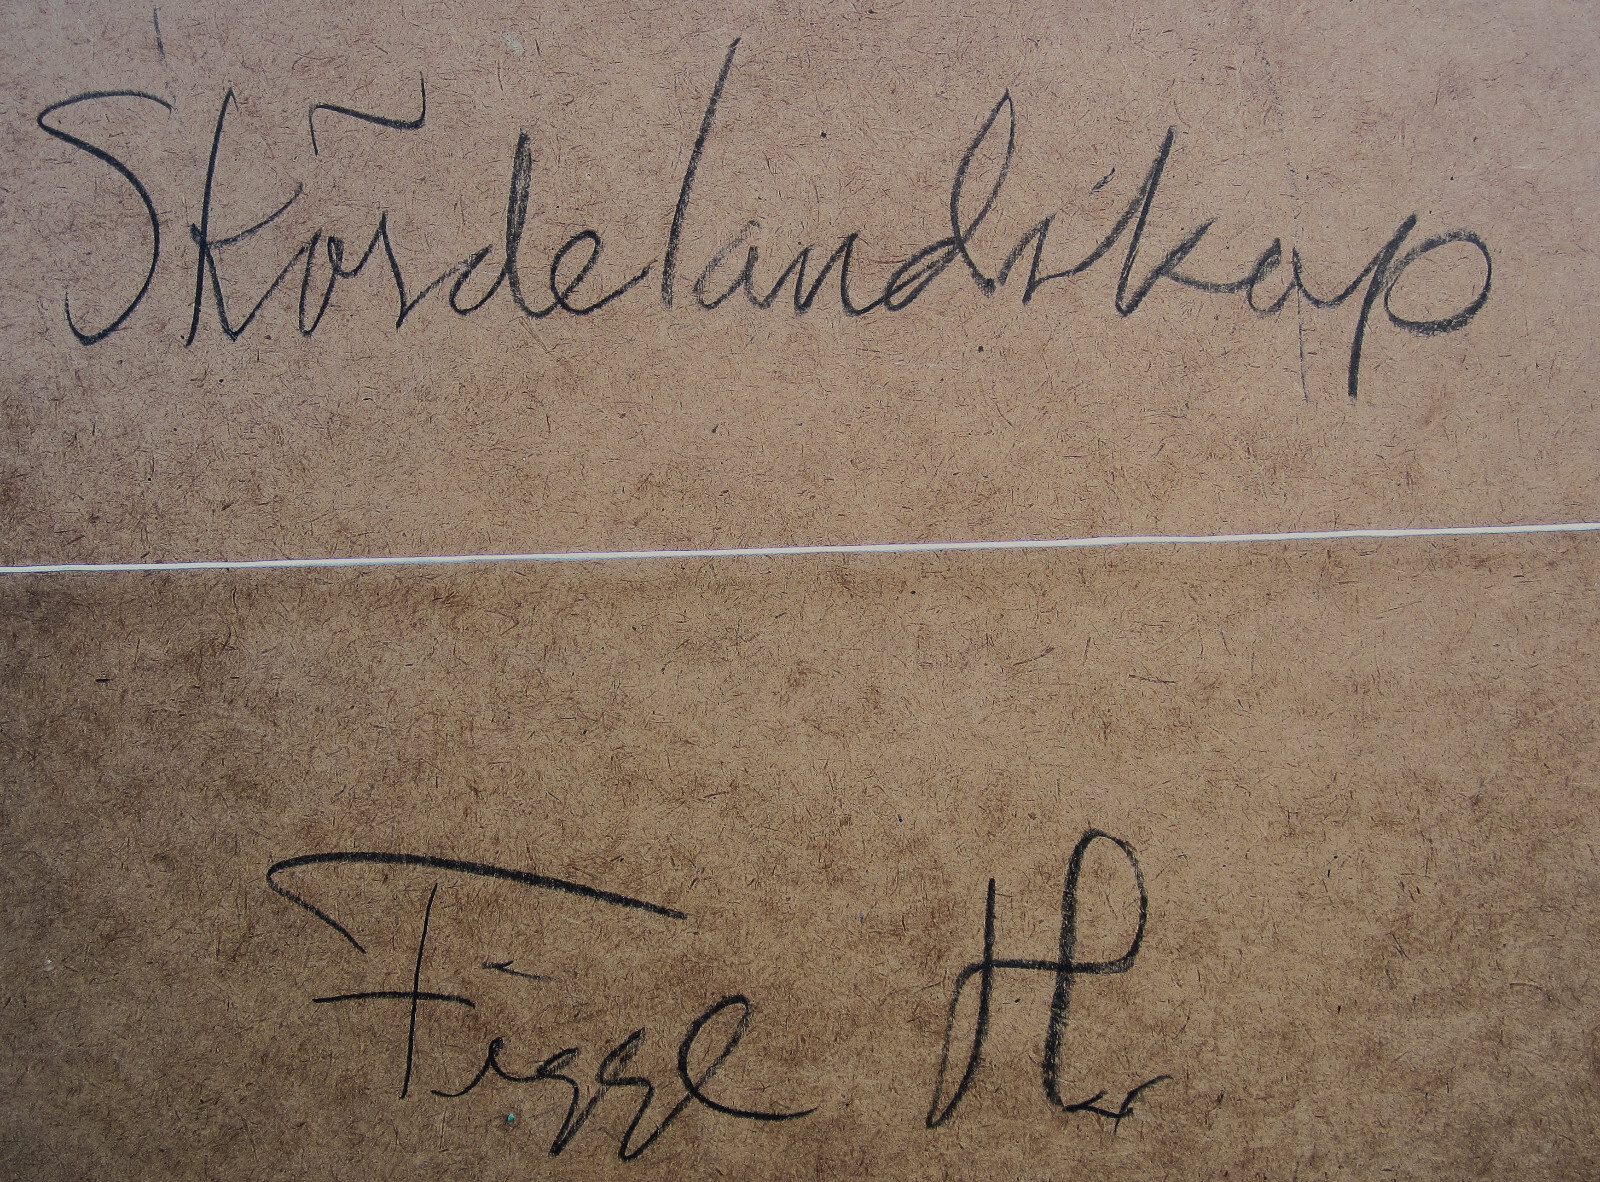 Skördelandskap
Figge Hr